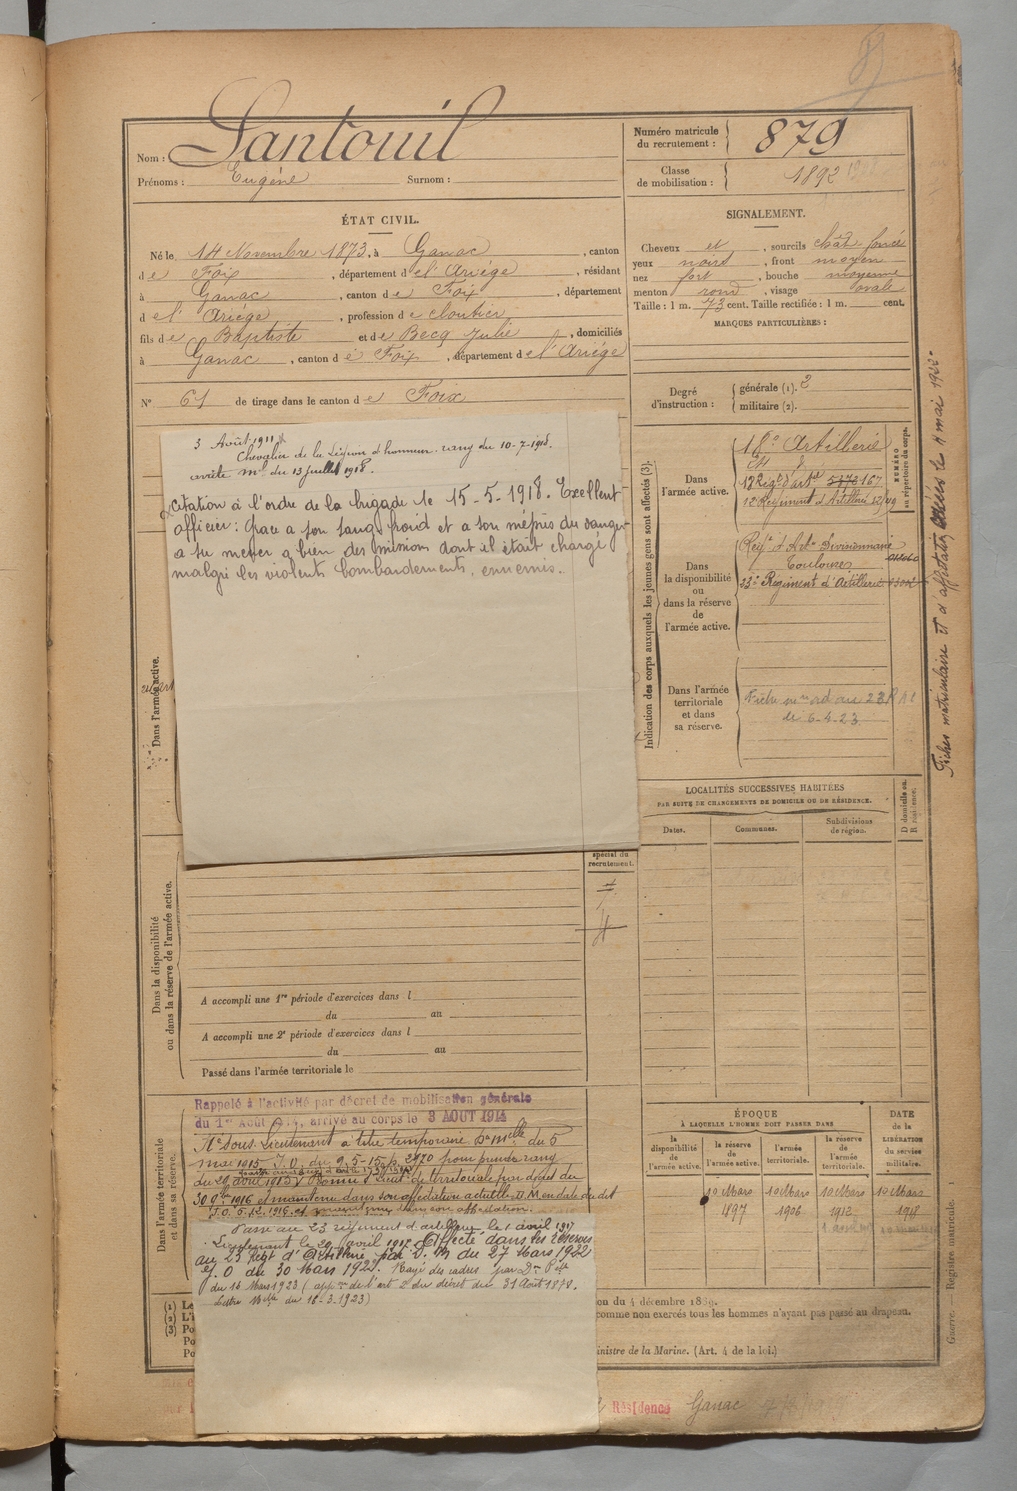 Nom : Santouil
Prénoms : Eugène Surnom :
Numéro matricule du recrutement : 879
Classe de mobilisation : 1892
ÉTAT CIVIL.
Né le 14 Novembre 1873, à Ganac, canton
de Foix, département de l'Ariége, résidant
à Ganac, canton de Foix, département
de l'Ariége, profession de cloutier
fils de Baptiste et de Becq Julie, domiciliés
à Ganac, canton de Foix, département de l'Ariége
N° 61 de tirage dans le canton de Foix
SIGNALEMENT.
Cheveux et, sourcils chât. foncé
yeux noirs, front moyen
nez fort, bouche moyenne
menton rond, visage ovale
Taille : 1 m. 73 cent. Taille rectifiée : 1 m. cent.
MARQUES PARTICULIÈRES :
Degré d'instruction : générale (1). 2
militaire (2).
3 Août 1911
Chevalier de la Légion d'honneur rang du 10-7-1918.
arrêté Mel du 13 juillet 1918.
Citation à l'ordre de la brigade le 15-5-1918. Excellent
officier : Grace a son sang froid et a son mépris du danger
a su mener a bien des missions dont il était chargé
malgré les violents bombardements ennemis.
Indication des corps auxquels les jeunes gens sont affectés (3).
NUMÉRO au répertoire du corps.
Dans l'armée active.
18e Artillerie
Dans la disponibilité ou dans la réserve de l'armée active.
Régt d'Artie Divisionnaire
Toulouse
23e Régiment d'Artillerie
Dans l'armée territoriale et dans sa réserve.
le 6-4-23
Fiches matriculaire et d'affectation créées le 4 mai 1922.
LOCALITÉS SUCCESSIVES HABITÉES
PAR SUITE DE CHANGEMENTS DE DOMICILE OU DE RÉSIDENCE.
Dates. Communes. Subdivisions de région. D domicile ou R résidence.
Dans l'armée active.
spécial du recrutement.
Dans la disponibilité ou dans la réserve de l'armée active.
A accompli une 1re période d'exercices dans l
du au
A accompli une 2e période d'exercices dans l
du au
Passé dans l'armée territoriale le
Dans l'armée territoriale et dans sa réserve.
Rappelé à l'activité par décret de mobilisation générale
du 1er Août 1914, arrivé au corps le 3 AOUT 1914
Né Sous-Lieutenant à titre temporaire Don Mlle du 5
mai 1915 J.O. du 9-5-15 p. 2920 pour prendre rang
du 29 avril 1915
30 9bre 1916 et maintenu dans son affectation actuelle D.M. en date du dit
J.O. 5.12.1916 et maintenu dans son affectation.
Passé au 23 régiment d'artillerie le 1 avril 1917
Lieutenant le 29 avril 1917 Affecté dans les réserves
au 23 Régt d'Artillerie par D. M du 27 Mars 1922
J. O du 30 Mars 1922. Rayé des cadres par Dn Pelle
du 16 Mars 1923 (appon de l'art 2 du décret du 31 Août 1878.
Lettre Melle du 16-3-1923)
ÉPOQUE
À LAQUELLE L'HOMME DOIT PASSER DANS
la disponibilité de l'armée active. la réserve de l'armée active. l'armée territoriale. la réserve de l'armée territoriale.
DATE de la LIBÉRATION du service militaire.
10 Mars 1897
10 Mars 1906
10 Mars 1912
10 Mars 1918
(1) Le
(2) L'I
(3) Po
Po
Po
on du 4 décembre 1889.
comme non exercés tous les hommes n'ayant pas passé au drapeau.
inistre de la Marine. (Art. 4 de la loi.)
Guerre. — Registre matricule. 1
Résidence Ganac